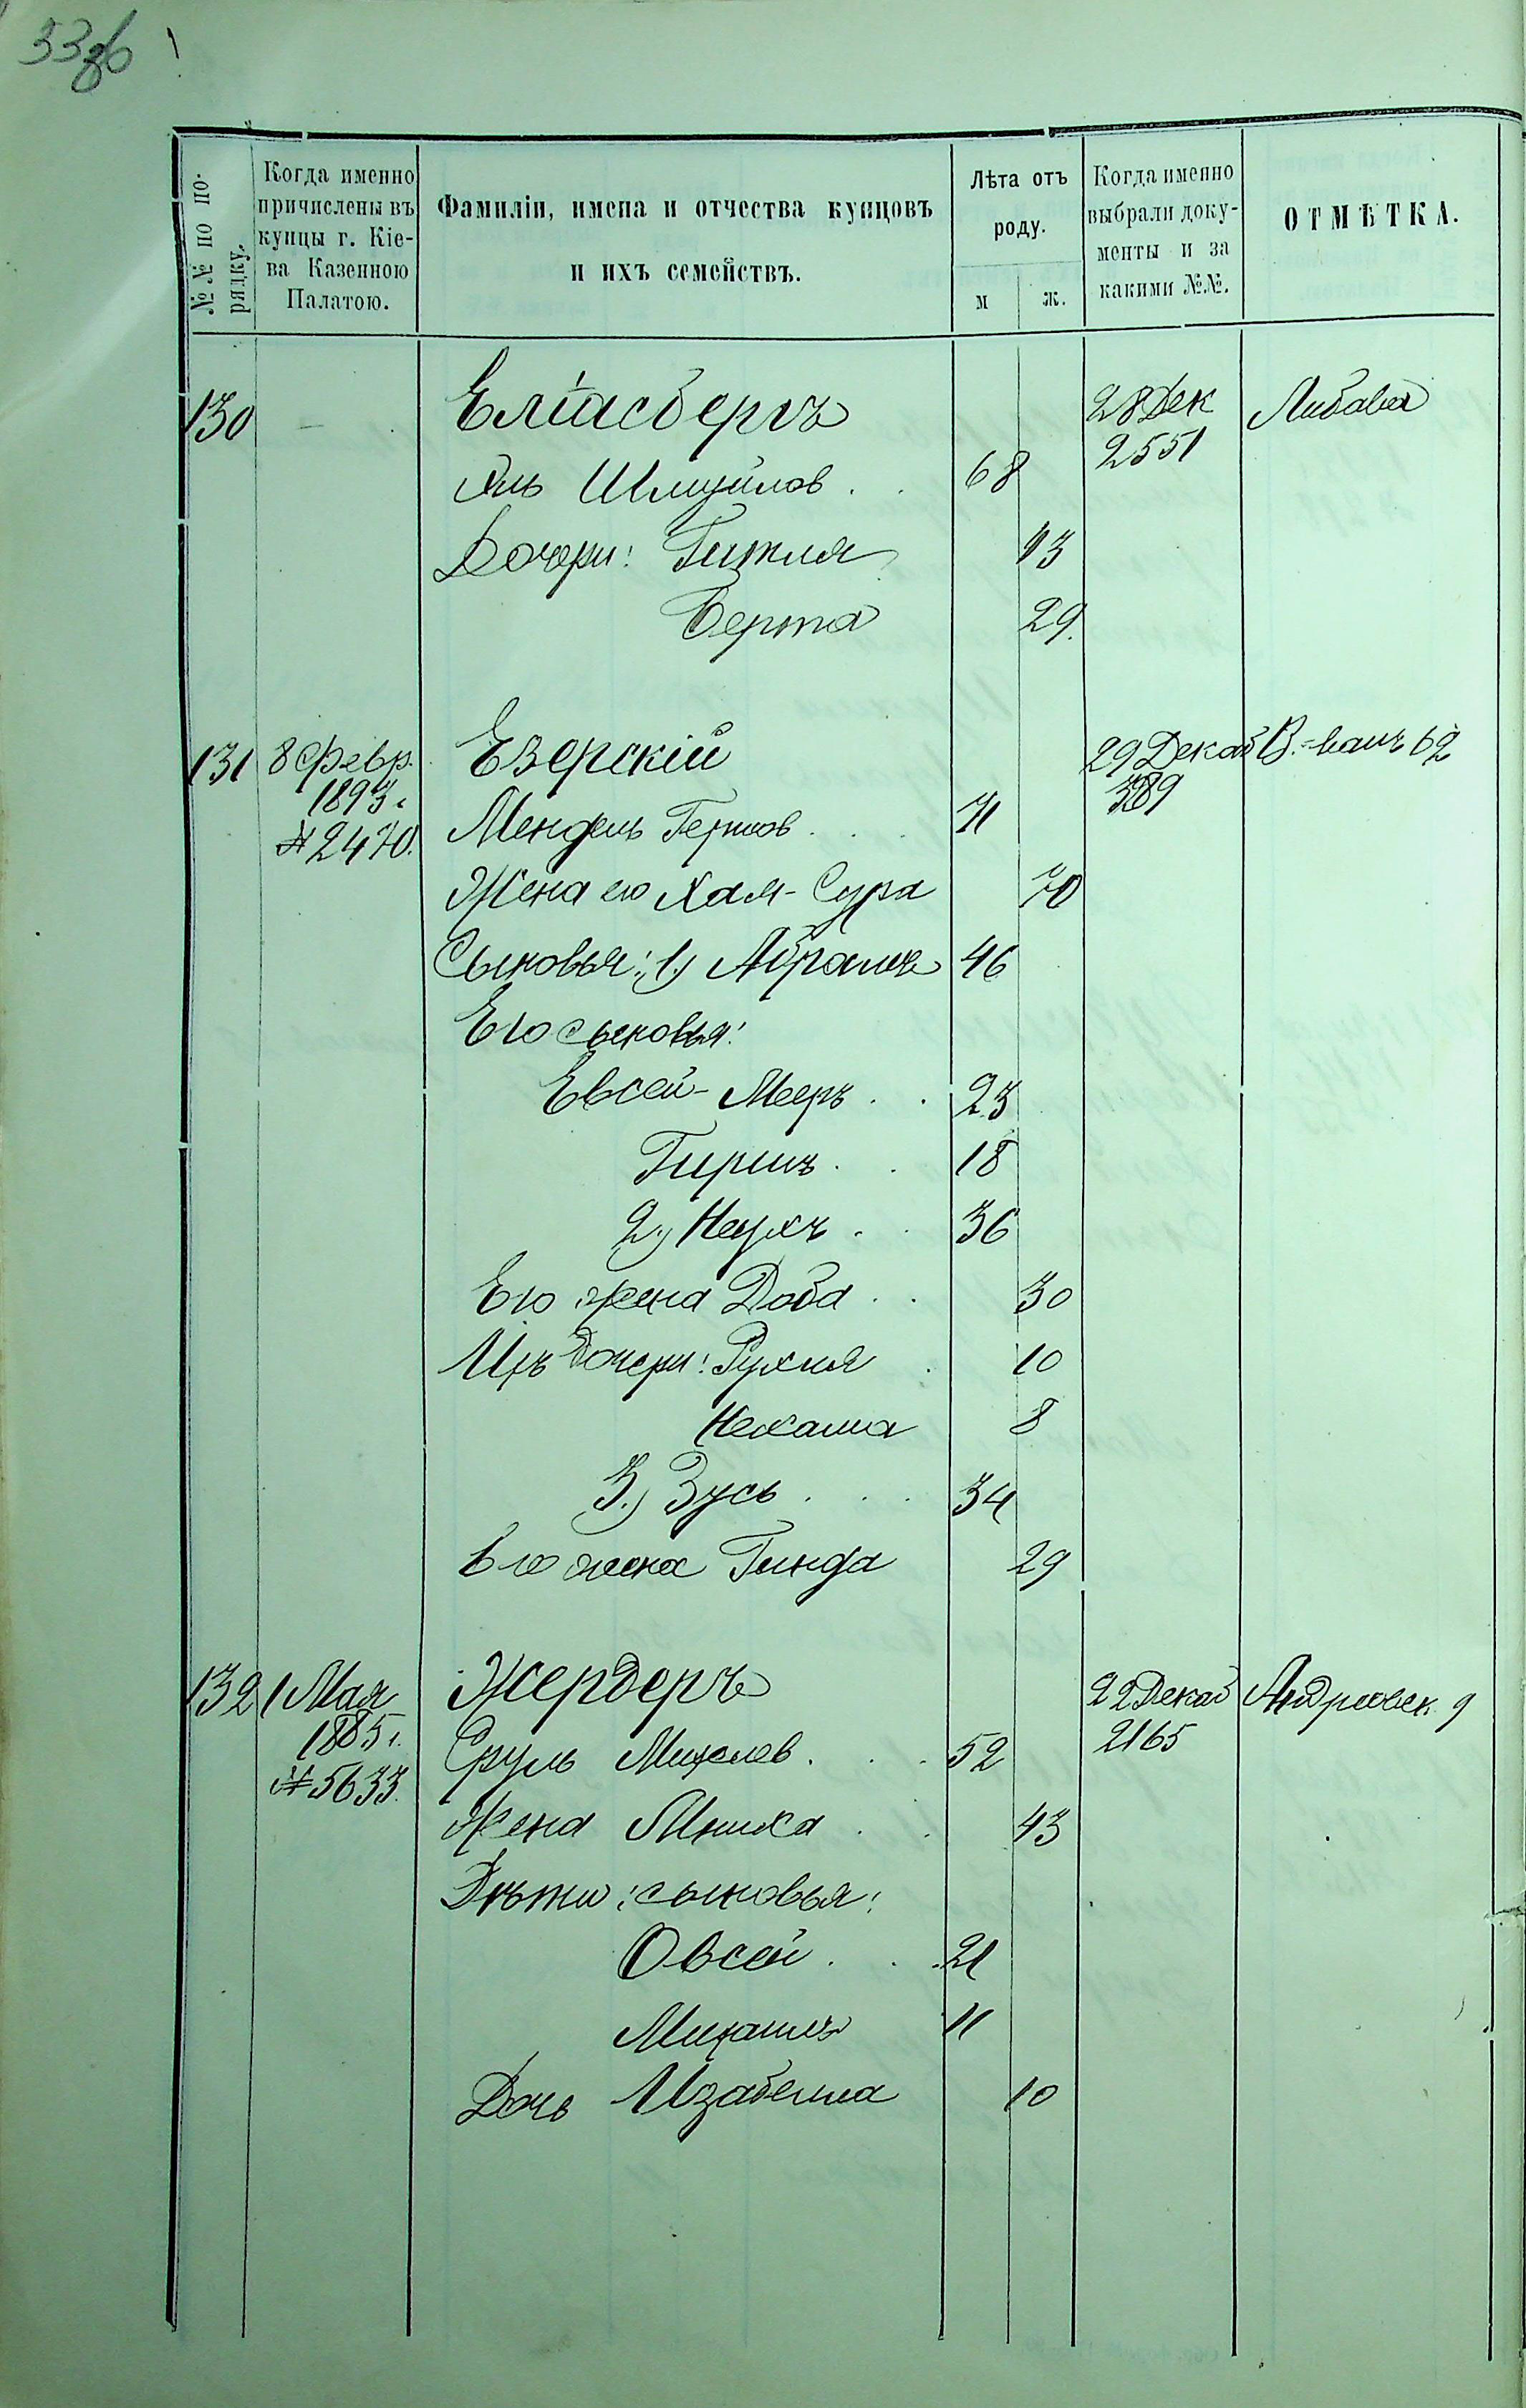 33об
№№ по по-
рядку.
Когда именно
причислены въ
купцы г. Кіе-
ва Казенною
Палатою.
Фамиліи, имена и отчества купцовъ
и ихъ семействъ.
Лѣта отъ
роду.
м ж.
Когда именно
выбрали доку-
менты и за
какими №№.
ОТМѢТКА.
130 — Еліасбергъ 28 Дек Либава
2551
Шмуйлов . . 68
Дочери: Гитля 43
Берта 29.
131 8 Февр. Езерскій 29 Декаб
1893 г. 389
№ 2470. Мендель Гершов . . . 71
Жена его Хая-Сура 70
Сыновья: 1.) Абрамъ 46
Его сыновья:
Евсей-Мееръ . . 23
Гиршъ . . 18
2.) Наухъ . . 36
Его жена Доба . . 30
Ихъ дочери: Рухля . 10
Нехама 8
3.) Зусь . . . 34
Его жена Гинда 29
132 1 Мая Жердеръ 22 Декаб Андреевск. 9
1885 г. 2165
№ 5633. Сруль Михелев . . . 52
Жена Мниха . . 43
Дѣти: сыновья:
Овсей . . . 21
Михаилъ 11
Дочь Изабелла 10